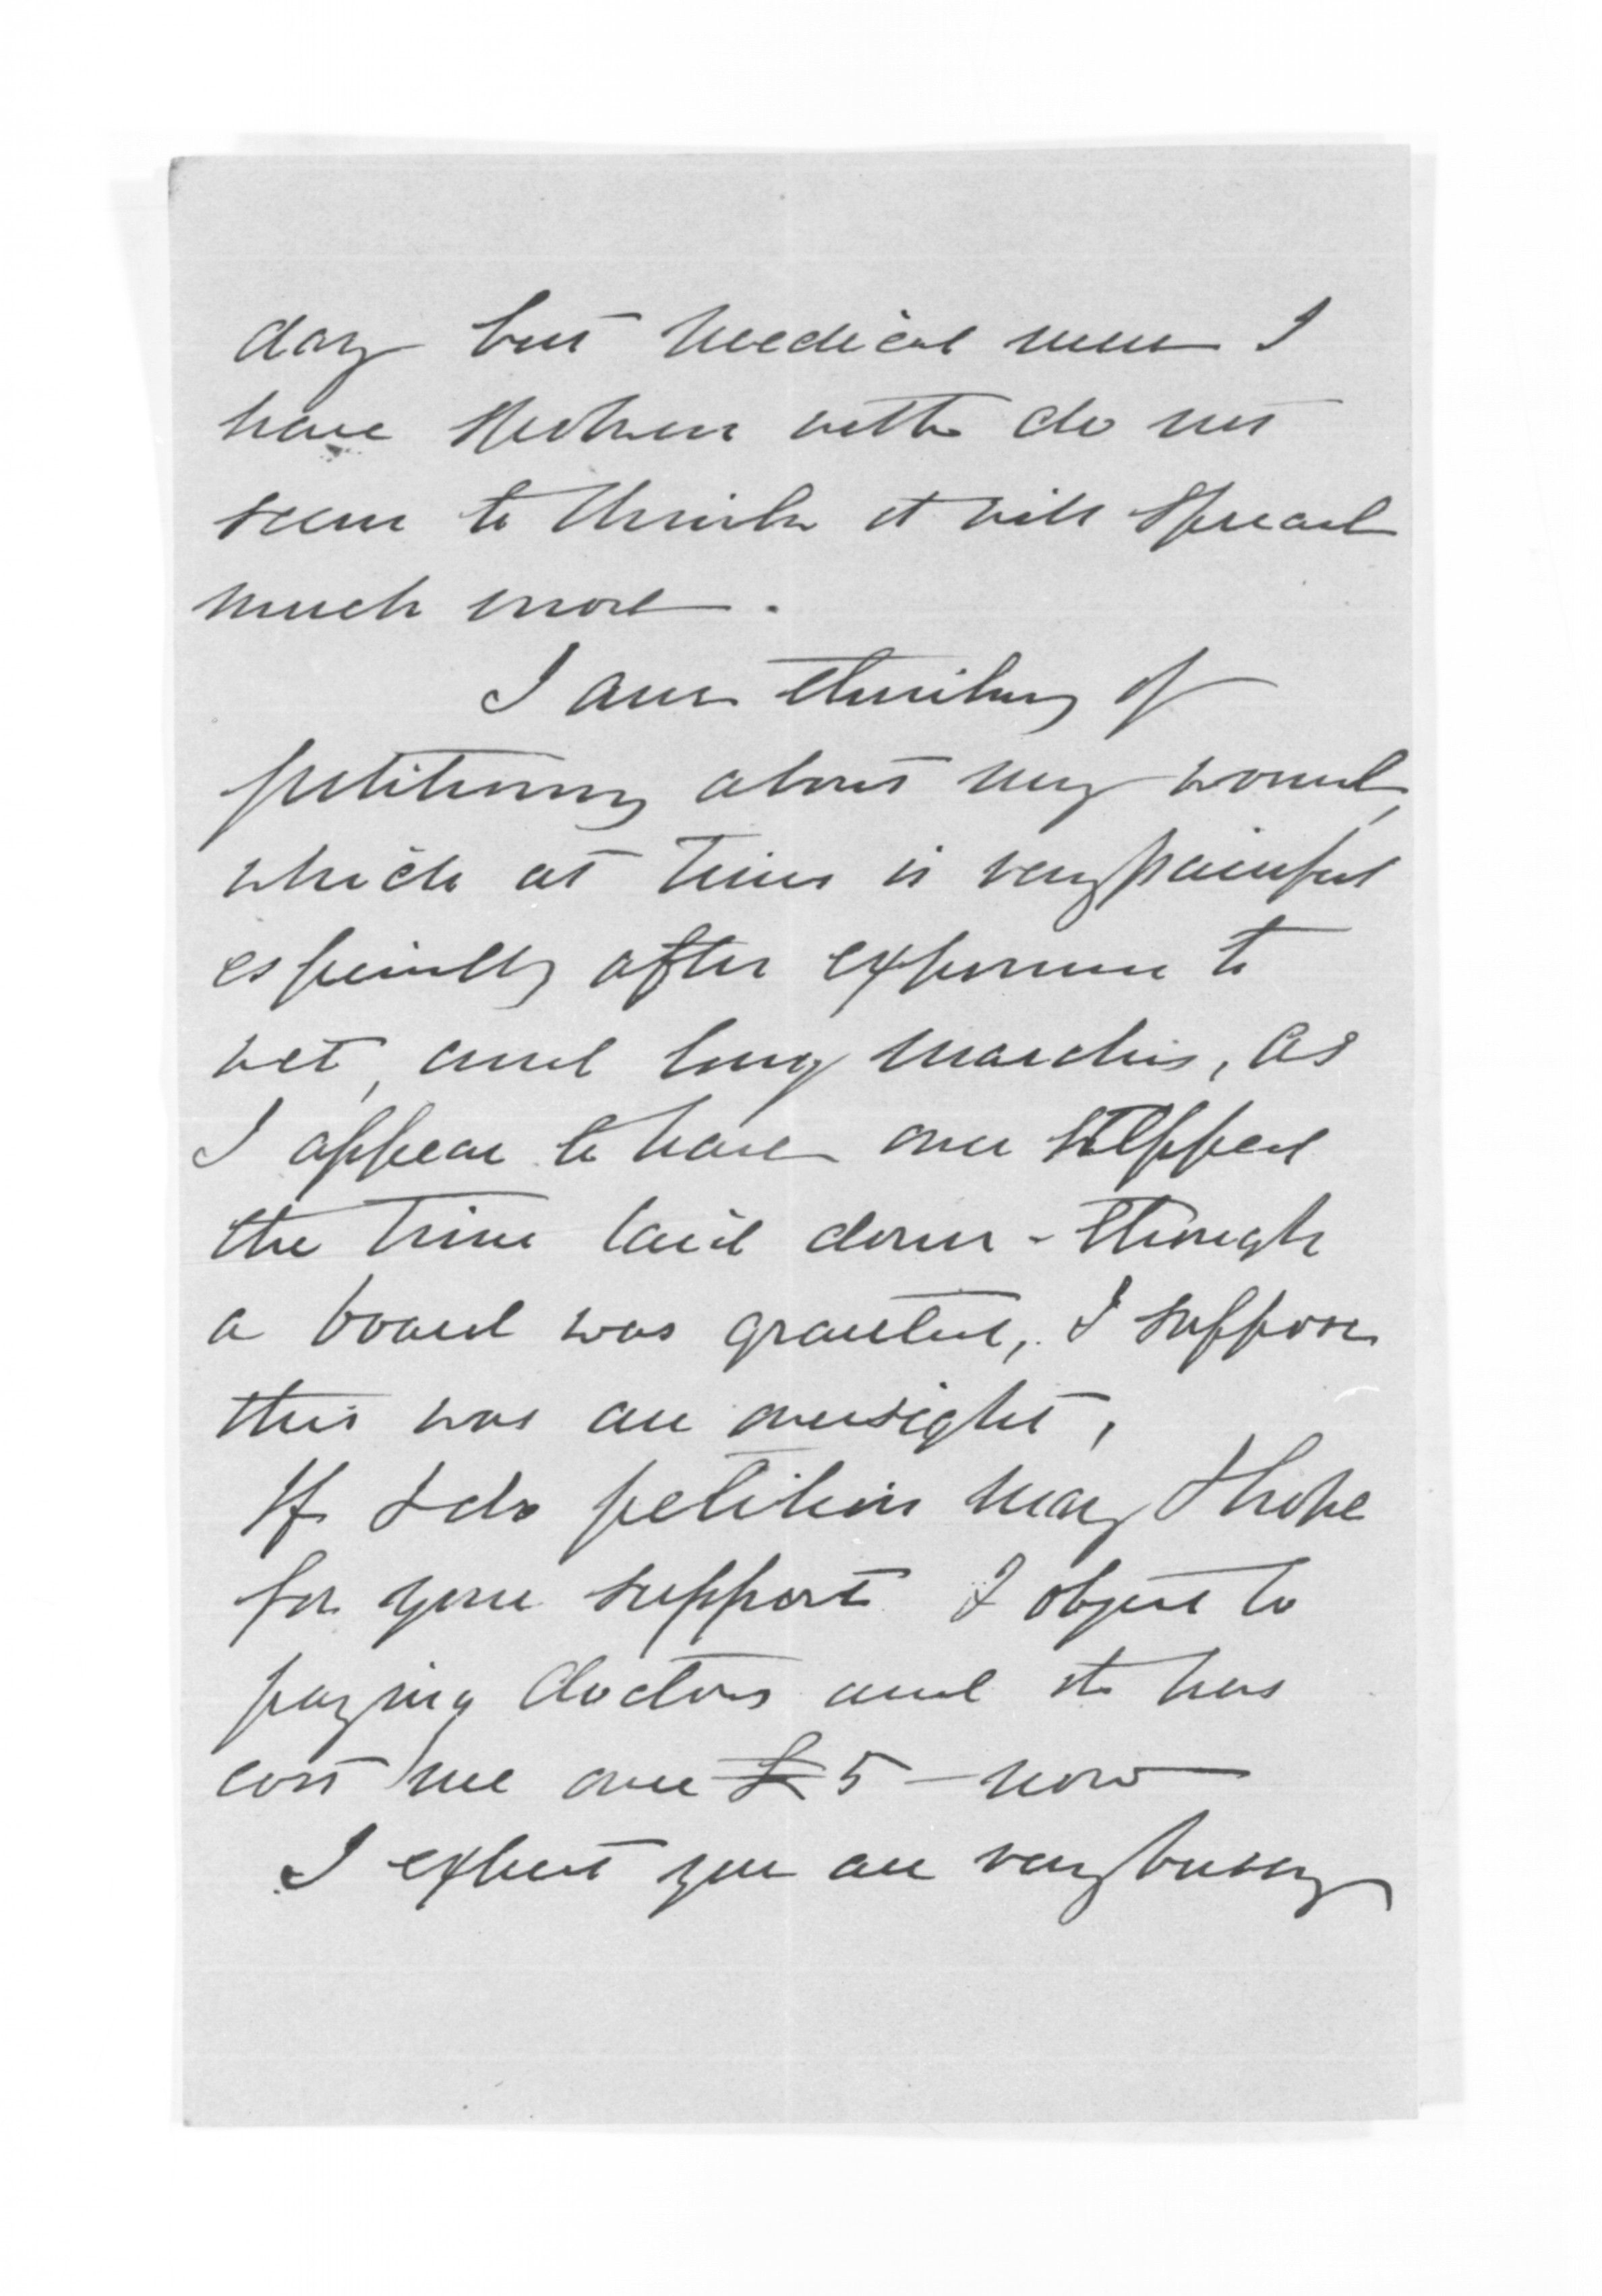 day but medical men I
have spoken with do not
seem to think it will spread
much more.
I am thinking of
petitioning about my wound,
which at times is very painful
especially after exposure to
wet, and long marches, as
I appear to have over stepped
the time laid down - though
a board was granted, I suppose
this was an oversight,
If I do petition may I hope
for your support I object to
paying doctors and it has
cost me over £5 - now
I expect you are very busy